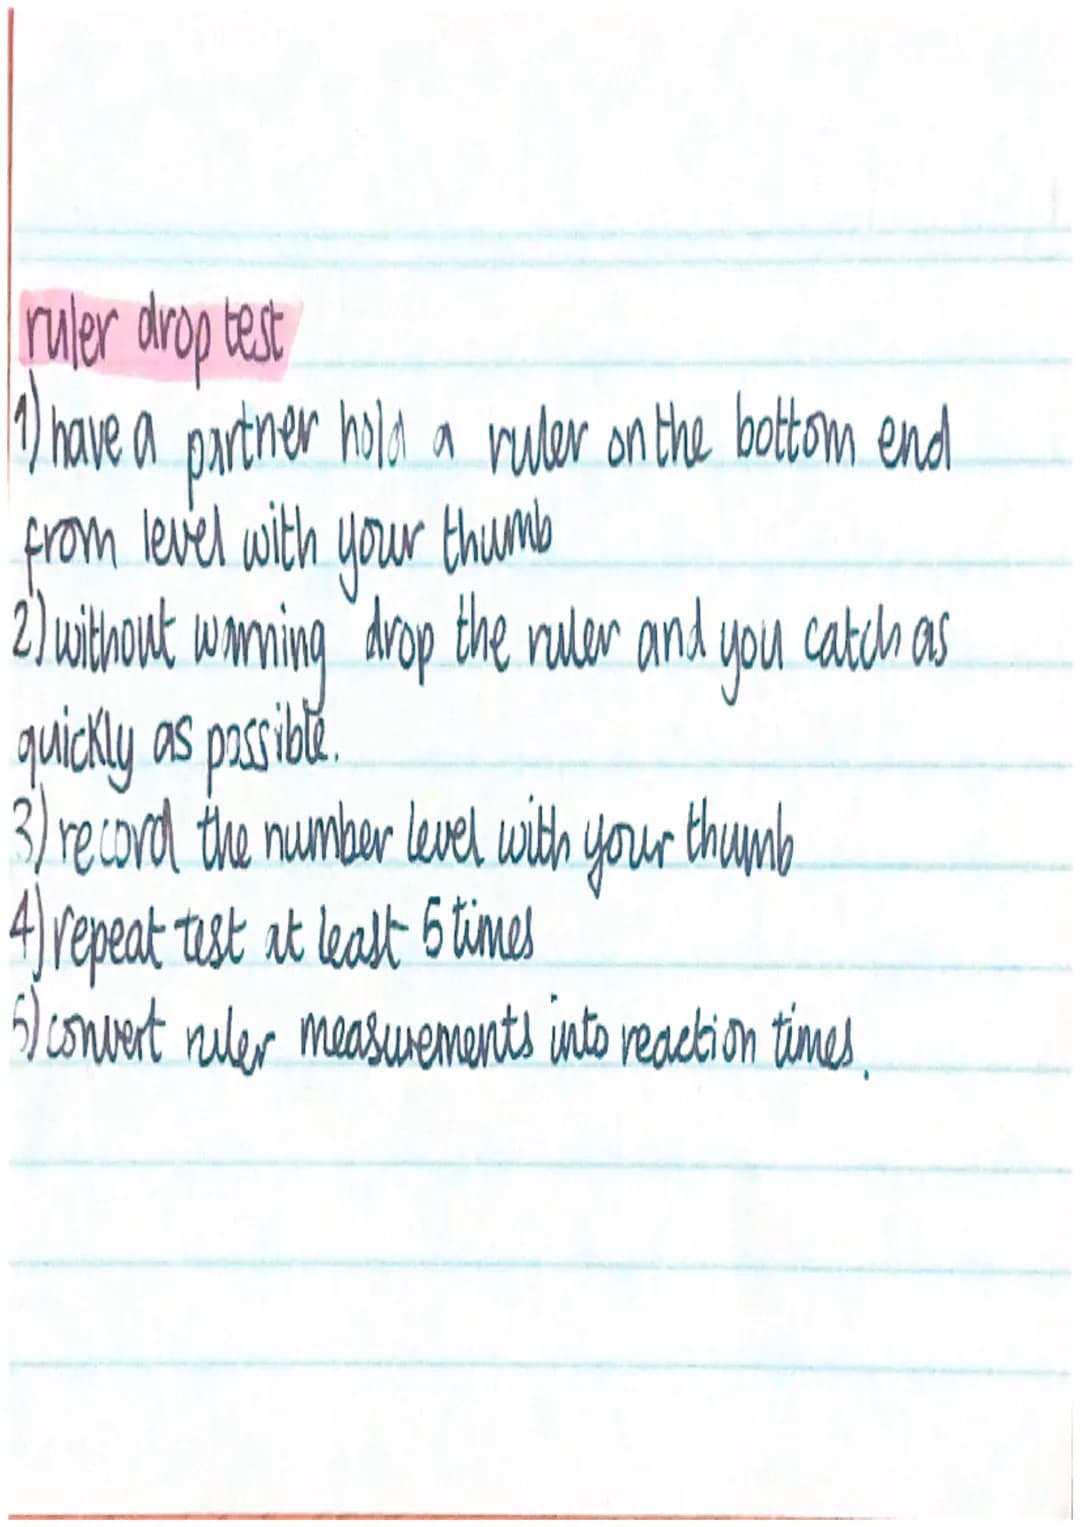 ruler drop test
1) have a partner hold a ruler on the bottom end
from level with your thumb
2) without warning drop the ruler and you catch as
quickly as possible.
3) record the number level with your thumb
4) repeat test at least 5 times
5) convert ruler measurements into reaction times.